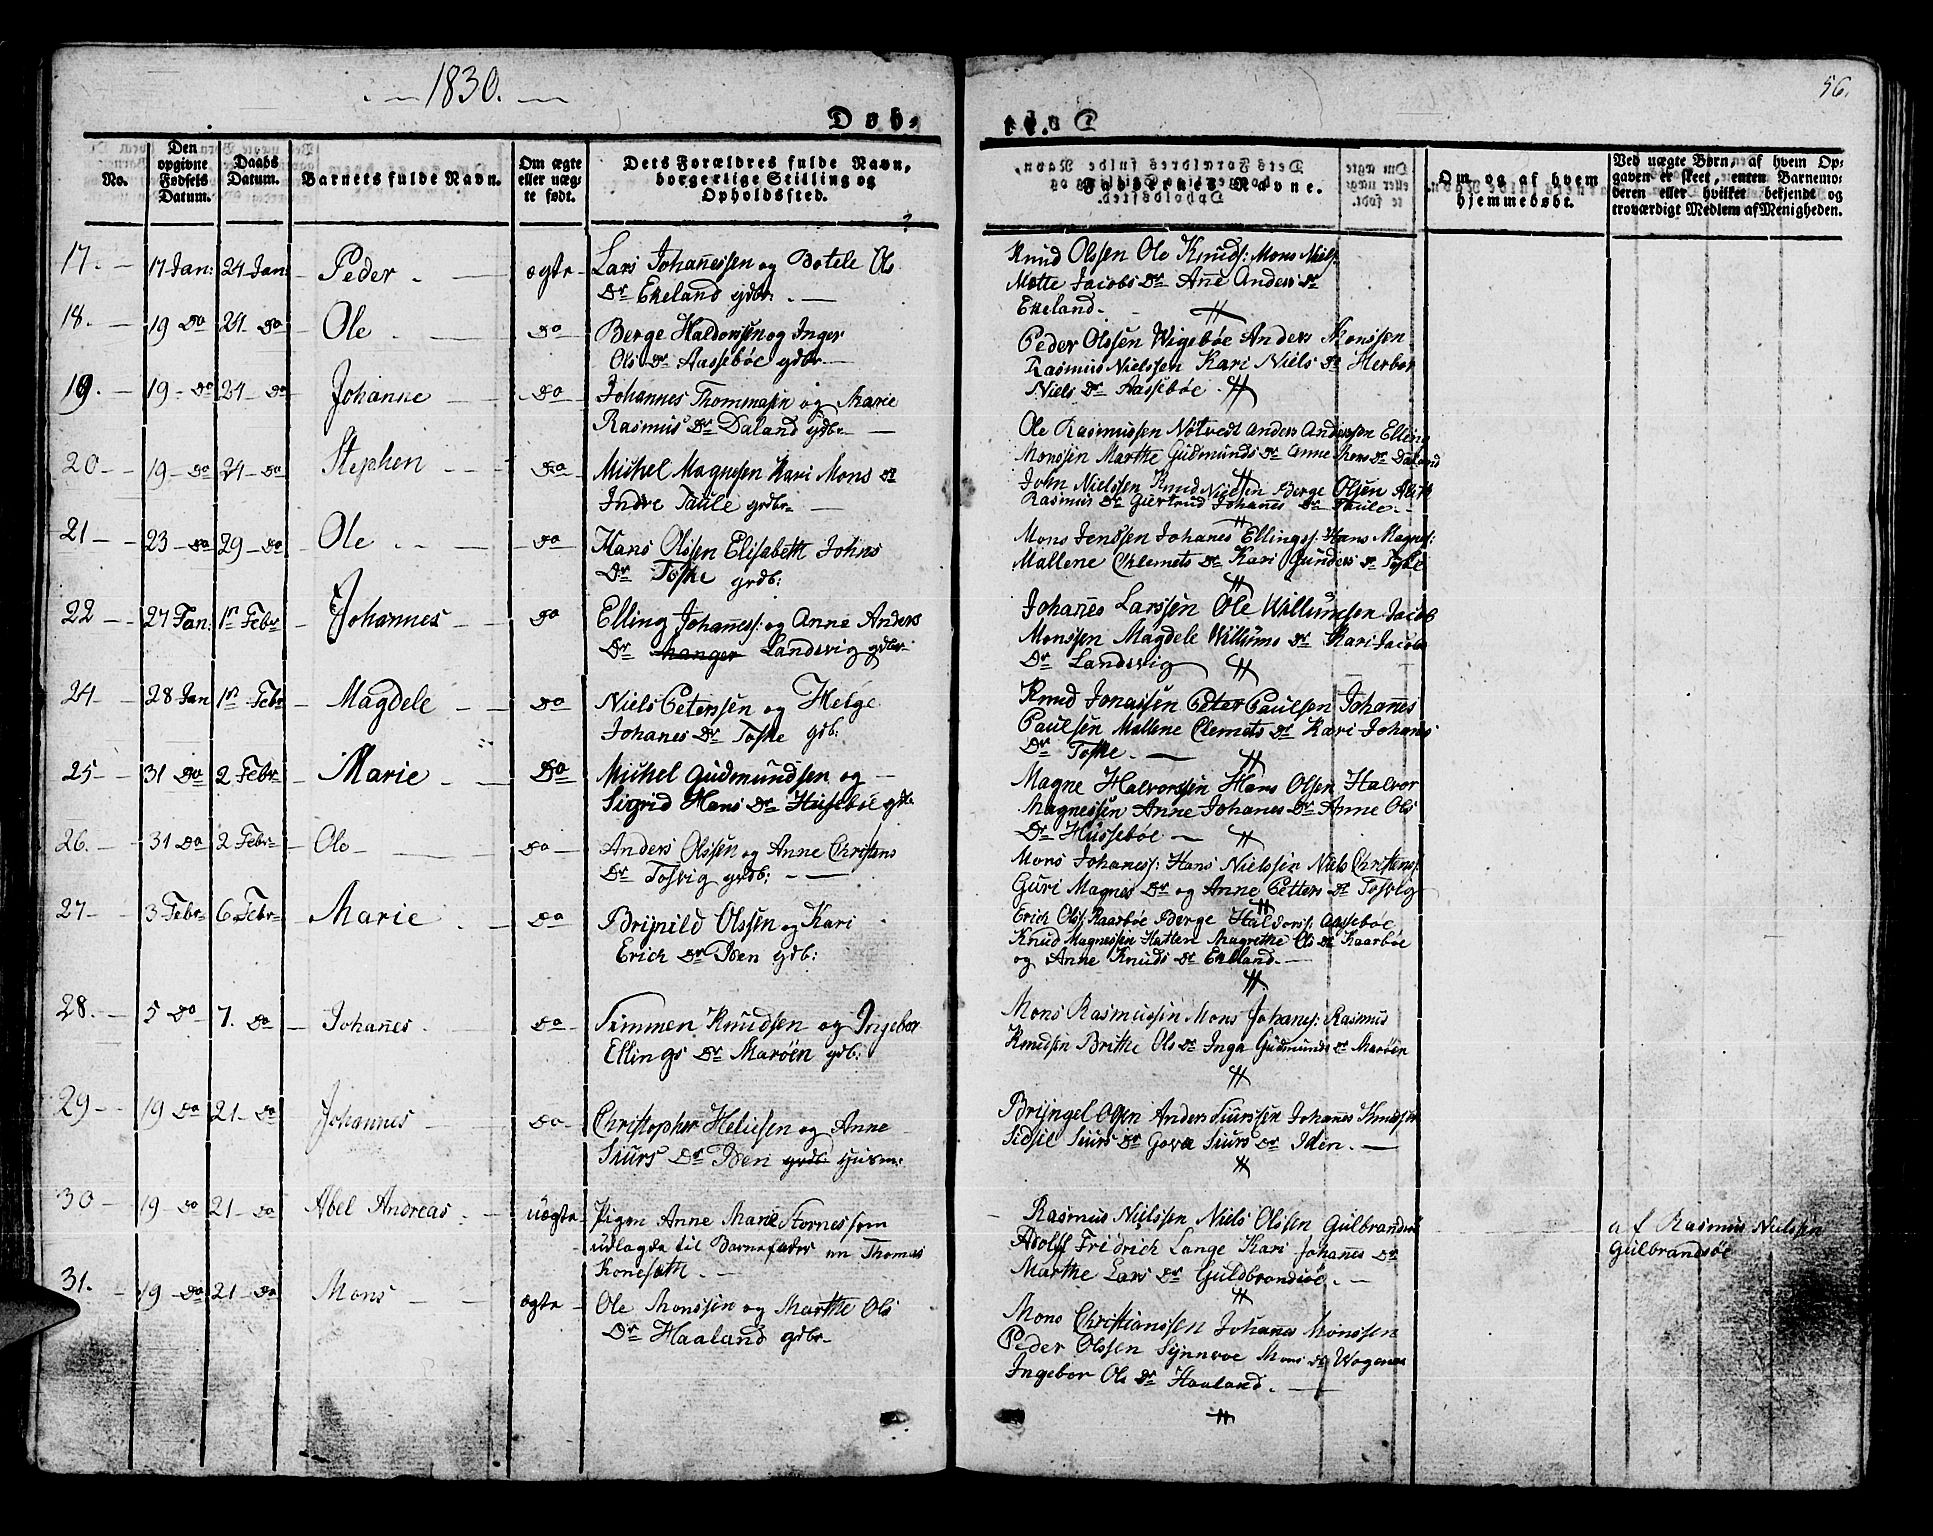 1830.
56.
Døb-
No.
Den opgivne Fødsels Datum.
Daabs Datum.
Barnets fulde Navn.
Om ægte eller uægte født.
Dets Forældres fulde Navn, borgerlige Stilling og Opholdssted.
Faddernes Navne.
Om og af hvem hjemmedøbt.
Ved uægte Børn, af hvem Opgaven er skeet, enten Barnemoderen eller hvilket bekjendt og troværdigt Medlem af Menigheden.
17. 17 Jan: 24 Jan: Peder ægte Lars Johanessen og Botele Ols
Dr Ekeland gdbr
Knud Olssen Ole Knuds: Mons Niels:
Mette Jacobs Dr Ane Anders Dr
Ekeland
18. 19 Do 24 Do Ole Do Berge Haldorssen og Inger
Ols Dr Aassebøe gdbr
Peder Olssen Wigebøe Anders Monssen
Rasmus Nielssen Kari Niels Dr Herbor
Niels Dr Aassebøe
19. 19 Do 24 Do Johanne Do Johannes Thommasen og Marie
Rasmus Dr Daland gdbr
Ole Rasmussen Nøtvedt Anders Andersen Elling
Monssen Marthe Gudmunds Dr Anne Dr Daland
20 19 Do 24 Do Stephen Do Michel Magnesen Kari Mons Dr
Indre Taule grdbr
John Nielssen Knud Nielsen Berge Olsen
Rasmus Dr Giertrud Johanes Dr Taule
21 23 Do 29 Do Ole Do Hans Olssen Elisabeth Johns
Dr Toske grdb:
Mons Jenssen Johanes Ellings: Hans Magnes:
Mallene Chlemets Dr Kari Gunders Dr Toske
22 27 Jan: 1st Febr Johannes Do Elling Johaness: og Anne Anders
Dr Manger Landsvig gdbr
Johanes Larssen Ole Willumsen Jacob
Monssen Magdele Willums Dr Kari Jacobs
Dr Landsvig
24 28 Jan 1st Febr Magdele Do Niels Petersen og Helge
Johanes Dr Toske gdb:
Knud Jonassen Peter Paulsen Johanes
Paulsen Mallene Clemets Dr Kari Johanes
Dr Toske
25 31 Do 2 Febr Marie Do Michel Gudmundsen og
Sigrid Hans Dr Husebøe gdb
Magne Halvorssen Hans Olsen Halvor
Magnessen Anne Johanes Dr Anne Ols
Dr Hussebøe
26. 31 Do 2 Febr Ole Do Anders Olssen og Anne Christens
Dr Tosvig grdb:
Mons Johaness: Hans Nielssen Niels Christens:
Guri Magnes Dr og Anne Petters Dr Tosvig
27 3 Febr 6 Febr Marie Do Brynild Olssen og Kari
Erich Dr Iden gdb:
Erich Ols: Kaarbøe Berge Haldors: Aassebøe
Knud Magnessen Hatten Magrethe Ols Dr Kaarbøe
og Anne Knuds Dr Ekeland
28. 5 Do 7. Do Johanes Do Simmen Knudsen og Ingebor
Ellings Dr Marøen gdb:
Mons Rasmussen Mons Johanes: Rasmus
Knudsen Brithe Ols Dr Inga Gudmunds Dr Marøen
29 19 Do 21 Do Johannes Do Christopher Heliesen og Anne
Siurs Dr Iden grdb: Husm:
Bryngel Olsen Anders Siurssen Johanes Knudsen
Sidsie Siurs Dr Gova Siurs Dr Iden.
30 19 Do 21 Do Abel Andreas uægte Pigen Anne Marie Stornes som
udlagde til Barnefader en Thomas
Rasmus Nielssen Niels Olssen Gulbrandsøe
Adolff Fridrich Lange Kari Johanes Dr
Marthe Lars Dr Guldbrandsøe.
af Rasmus Nielssen
Gulbrandsøe
31. 19 Do 21 Do Mons ægte Ole Monssen og Marthe Ols
Dr Haaland gdbr
Mons Christianssen Johanes Monssen
Peder Olssen Synnvoe Mons Dr
Ingebor Ols Dr Haaland.